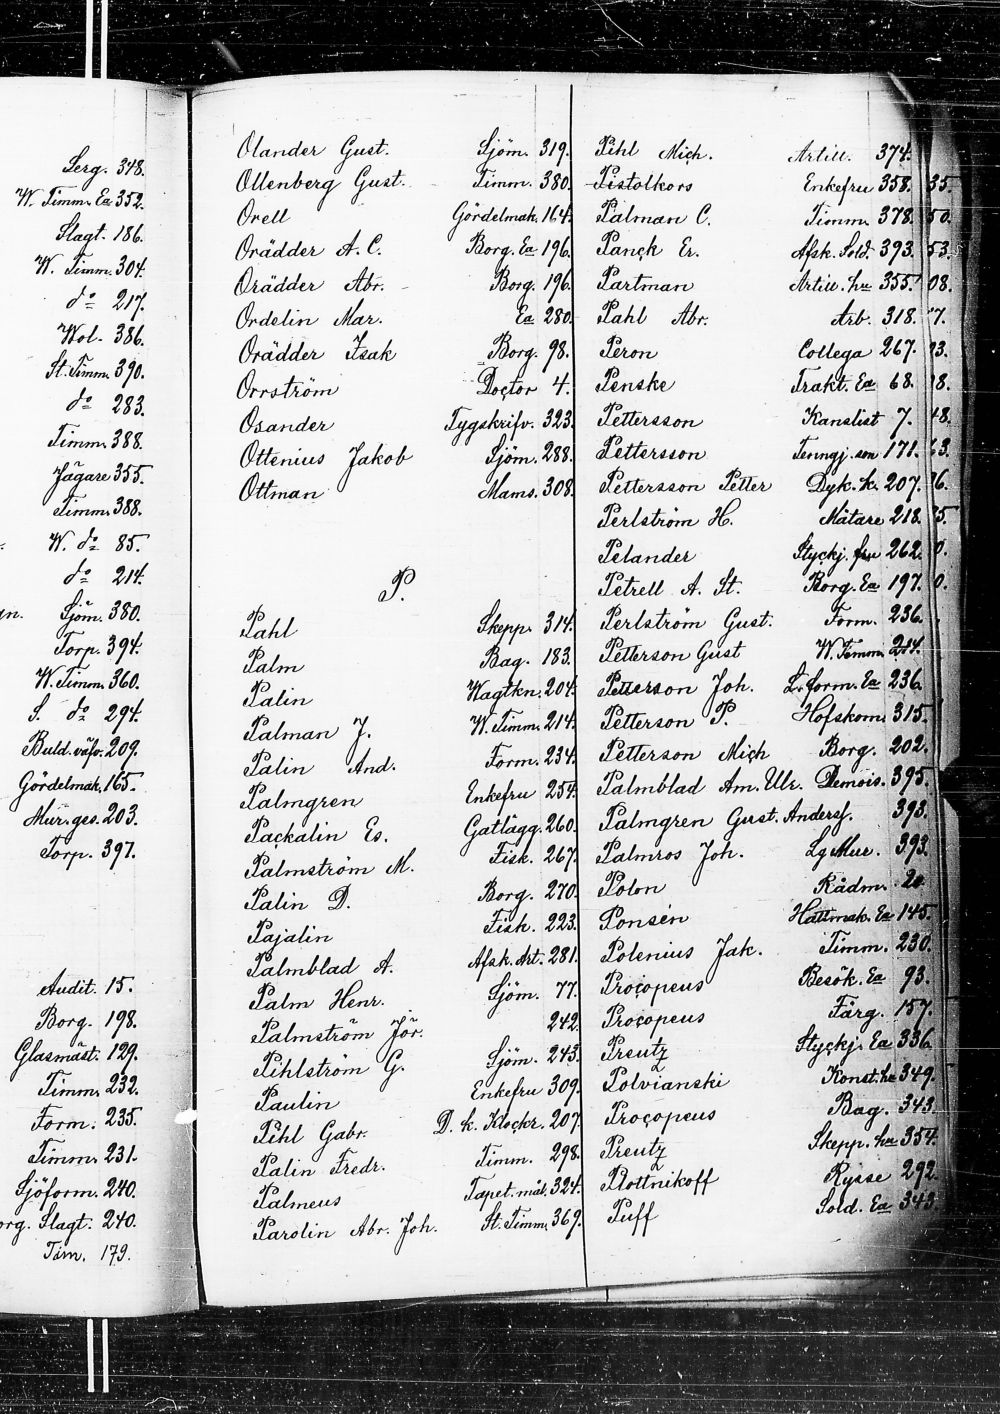 Serg. 348.
W. Timm. Ea 352.
Slagt. 186.
W. Timm. 304.
do 217.
Wol. 386.
St. Timm. 390.
do 283.
Timm. 388.
Jägare 355.
Timm. 388.
W. do 85.
do 214.
Sjöm. 380.
Torp. 394.
W. Timm. 360.
S. do 294.
Buld.väfv. 209.
Gördelmak. 165.
Mur.ges. 203.
Torp. 397.
Audit. 15.
Borg. 198.
Glasmäst. 129.
Timm. 232.
Form. 235.
Timm. 231.
Sjöform. 240.
org. Slagt. 240.
Tim. 179.
Olander Gust. Sjöm. 319.
Ollenberg Gust. Timm. 380.
Orell Gördelmak. 164.
Orädder A. C. Borg. Ea 196.
Orädder Abr. Borg. 196.
Ordelin Mar. Ea 280.
Orädder Isak Borg. 98.
Orrström Doctor 4.
Osander Tygskrifv. 323.
Ottenius Jakob Sjöm. 288.
Ottman Mams. 308.
P.
Pahl Skepp. 314.
Palm Bag. 183.
Palin Wagtkn. 204.
Palman J. W. Timm. 214.
Palin And. Form. 234.
Palmgren Enkefru 254.
Packalin Es. Gatlägg. 260.
Palmström M. Fisk. 267.
Palin D. Borg. 270.
Pajalin Fisk. 223.
Palmblad A. Afsk. Art. 281.
Palm Henr. Sjöm. 77.
Palmström Jör. 242.
Pihlström G. Sjöm. 243.
Paulin Enkefru 309.
Pihl Gabr. D. k. Klockr. 207.
Palin Fredr. Timm. 298.
Palmeus Tapet.mål. 324.
Parolin Abr. Joh. St. Timm. 369.
Pihl Mich. Artill. 374.
Pistolkors Enkefru 358.
Palman C. Timm. 378.
Panck Er. Afsk. Sold. 393.
Partman Artill. hu 355.
Pahl Abr. Arb. 318.
Peron Collega 267.
Penske Trakt. Ea 68.
Pettersson Kanslist 7.
Pettersson Tenngj. son 171.
Pettersson Petter Dyk. k. 207.
Perlström H. Mätare 218.
Pelander Styckj. fru 262.
Petrell A. St. Borg. Ea 197.
Perlström Gust. Form. 236.
Petterson Gust W. Timm. 214.
Petterson Joh. L. form. Ea 236.
Petterson P. Hofskom. 315.
Petterson Mich Borg. 202.
Palmblad Am. Ulr. Demois. 395.
Palmgren Gust. Anders. 393.
Palmros Joh. Lg Mur. 393.
Polon Rådm. 20.
Ponsén Hattmak. Ea 145.
Polenius Jak. Timm. 230.
Procopeus Besök. Ea 93.
Procopeus Färg. 157.
Preutz Styckj. Ea 336.
Polvianski Konst. hu 349.
Procopeus Bag. 343.
Preutz Skepp. hu 354.
Plottnikoff Rysse 292.
Puff Sold. Ea 343.
35.
50.
53.
08.
7.